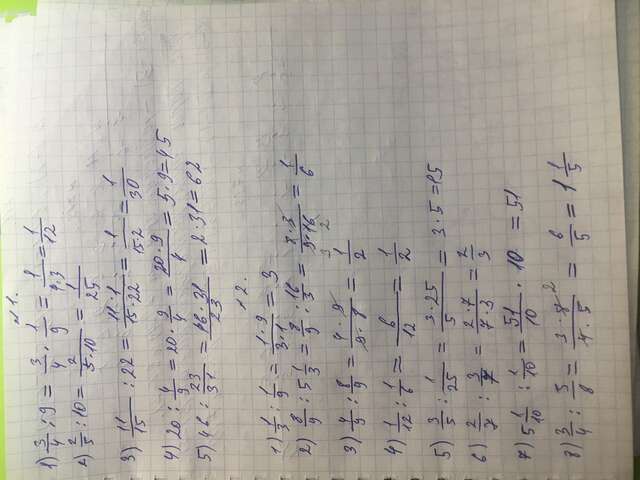 №1.
1) 3/4 : 9 = 3/4 · 1/9 = 1/(4·3) = 1/12
2) 2/5 : 10 = 2/(5·10) = 1/25
3) 11/15 : 22 = (11·1)/(15·22) = 1/(15·2) = 1/30
4) 20 : 4/9 = 20 · 9/4 = (20·9)/4 = 5·9 = 45
5) 46 : 23/31 = (46·31)/23 = 2·31 = 62
№2.
1) 1/3 : 1/9 = (1·9)/(3·1) = 3
2) 8/9 : 5 1/3 = 8/9 : 16/3 = (8·3)/(9·16) = 1/6
3 2
3) 4/9 : 8/9 = (4·9)/(9·8) = 1/2
4) 1/12 : 1/6 = 6/12 = 1/2
5) 3/5 : 1/25 = (3·25)/5 = 3·5 = 15
6) 2/7 : 3/7 = (2·7)/(7·3) = 2/3
7) 5 1/10 : 1/10 = 51/10 · 10 = 51
8) 3/4 : 5/8 = (3·8 2)/(4·5) = 6/5 = 1 1/5